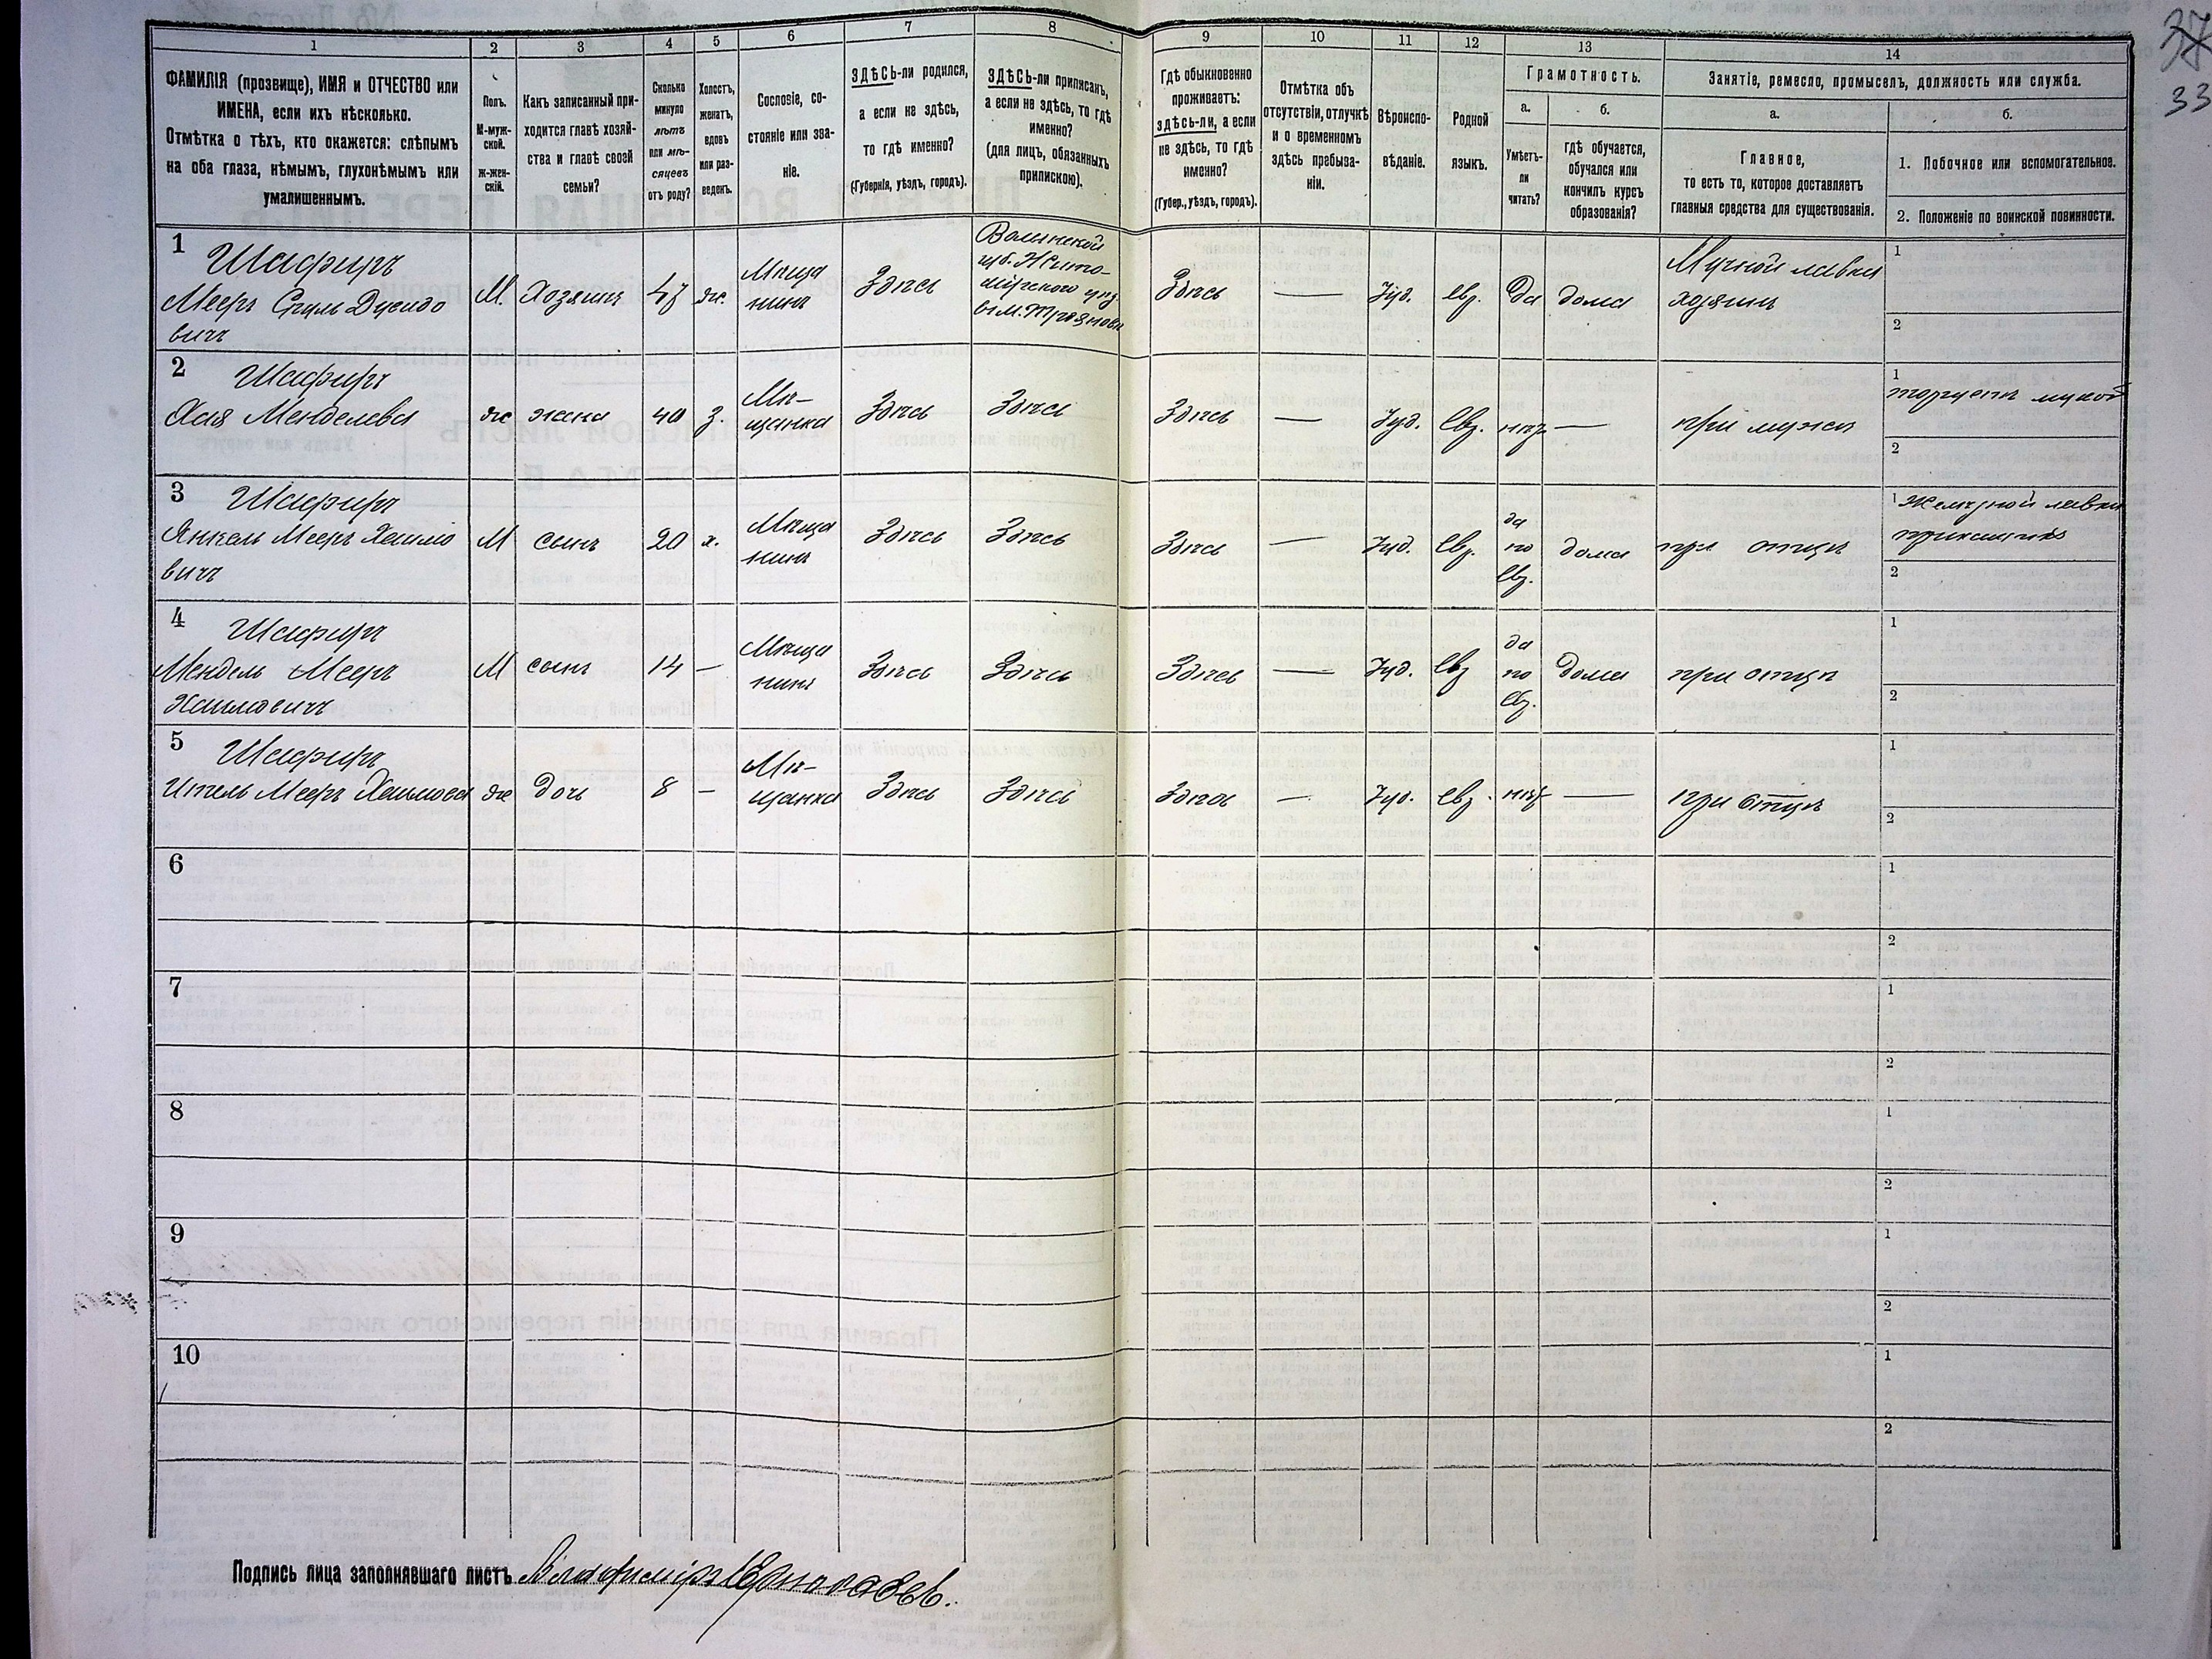 37
33
1 2 3 4 5 6 7 8 9 10 11 12 13 14
ФАМИЛІЯ (прозвище), ИМЯ и ОТЧЕСТВО или
ИМЕНА, если ихъ нѣсколько.
Отмѣтка о тѣхъ, кто окажется: слѣпымъ
на оба глаза, нѣмымъ, глухонѣмымъ или
умалишеннымъ.
Полъ.
М-муж-
ской.
ж-жен-
скій.
Какъ записанный при-
ходится главѣ хозяй-
ства и главѣ своей
семьи?
Сколько
минуло
лѣтъ
или мѣ-
сяцевъ
отъ роду?
Холостъ,
женатъ,
вдовъ
или раз-
веденъ.
Сословіе, со-
стояніе или зва-
ніе.
ЗДѢСЬ-ли родился,
а если не здѣсь,
то гдѣ именно?
(Губернія, уѣздъ, городъ).
ЗДѢСЬ-ли приписанъ,
а если не здѣсь, то гдѣ
именно?
(для лицъ, обязанныхъ
припискою).
Гдѣ обыкновенно
проживаетъ:
здѣсь-ли, а если
не здѣсь, то гдѣ
именно?
(Губер., уѣздъ, городъ).
Отмѣтка объ
отсутствіи, отлучкѣ
и о временномъ
здѣсь пребыва-
ніи.
Вѣроиспо-
вѣданіе.
Родной
языкъ.
Грамотность.
а.
Умѣетъ-
ли
читать?
б.
гдѣ обучается,
обучался или
кончилъ курсъ
образованія?
Занятіе, ремесло, промыселъ, должность или служба.
а.
Главное,
то есть то, которое доставляетъ
главныя средства для существованія.
б.
1. Побочное или вспомогательное.
2. Положеніе по воинской повинности.
1 Шафиръ
Мееръ Дувидо
вичъ
М. Хозяинъ 47 ж.
Мѣща
нинъ
Здѣсь
Волынской
губ. Жито-
мірского уѣз.
Здѣсь — Іуд. евр. да дома
Мучной лавки
хозяинъ
1
2
2 Шафиръ
Хая Менделева
же жена 40 з.
Мѣ-
щанка
Здѣсь Здѣсь Здѣсь — Іуд. Евр. нѣт — при мужѣ
1 торгуетъ мукой
2
3 Шафиръ
Янкель Мееръ Хаимо
вичъ
М сынъ 20 х.
Мѣща
нинъ
Здѣсь Здѣсь Здѣсь — Іуд. Евр.
да
по
Евр.
дома при отцѣ
1 Желѣзной лавки
прикащикъ
2
4 Шафиръ
Мендель Мееръ
Хаимовичъ
М сынъ 14 —
Мѣща
нинъ
Здѣсь Здѣсь Здѣсь — Іуд. Евр
да
по
Евр.
дома при отцѣ
1
2
5 Шафиръ
Ител Мееръ Хаимова
же дочь 8 —
Мѣ-
щанка
Здѣсь Здѣсь Здѣсь — Іуд. евр. нѣт — при отцѣ
1
2
6
1
2
7
1
2
8
1
2
9
1
2
10
1
2
Подпись лица заполнявшаго листъ Владиміръ